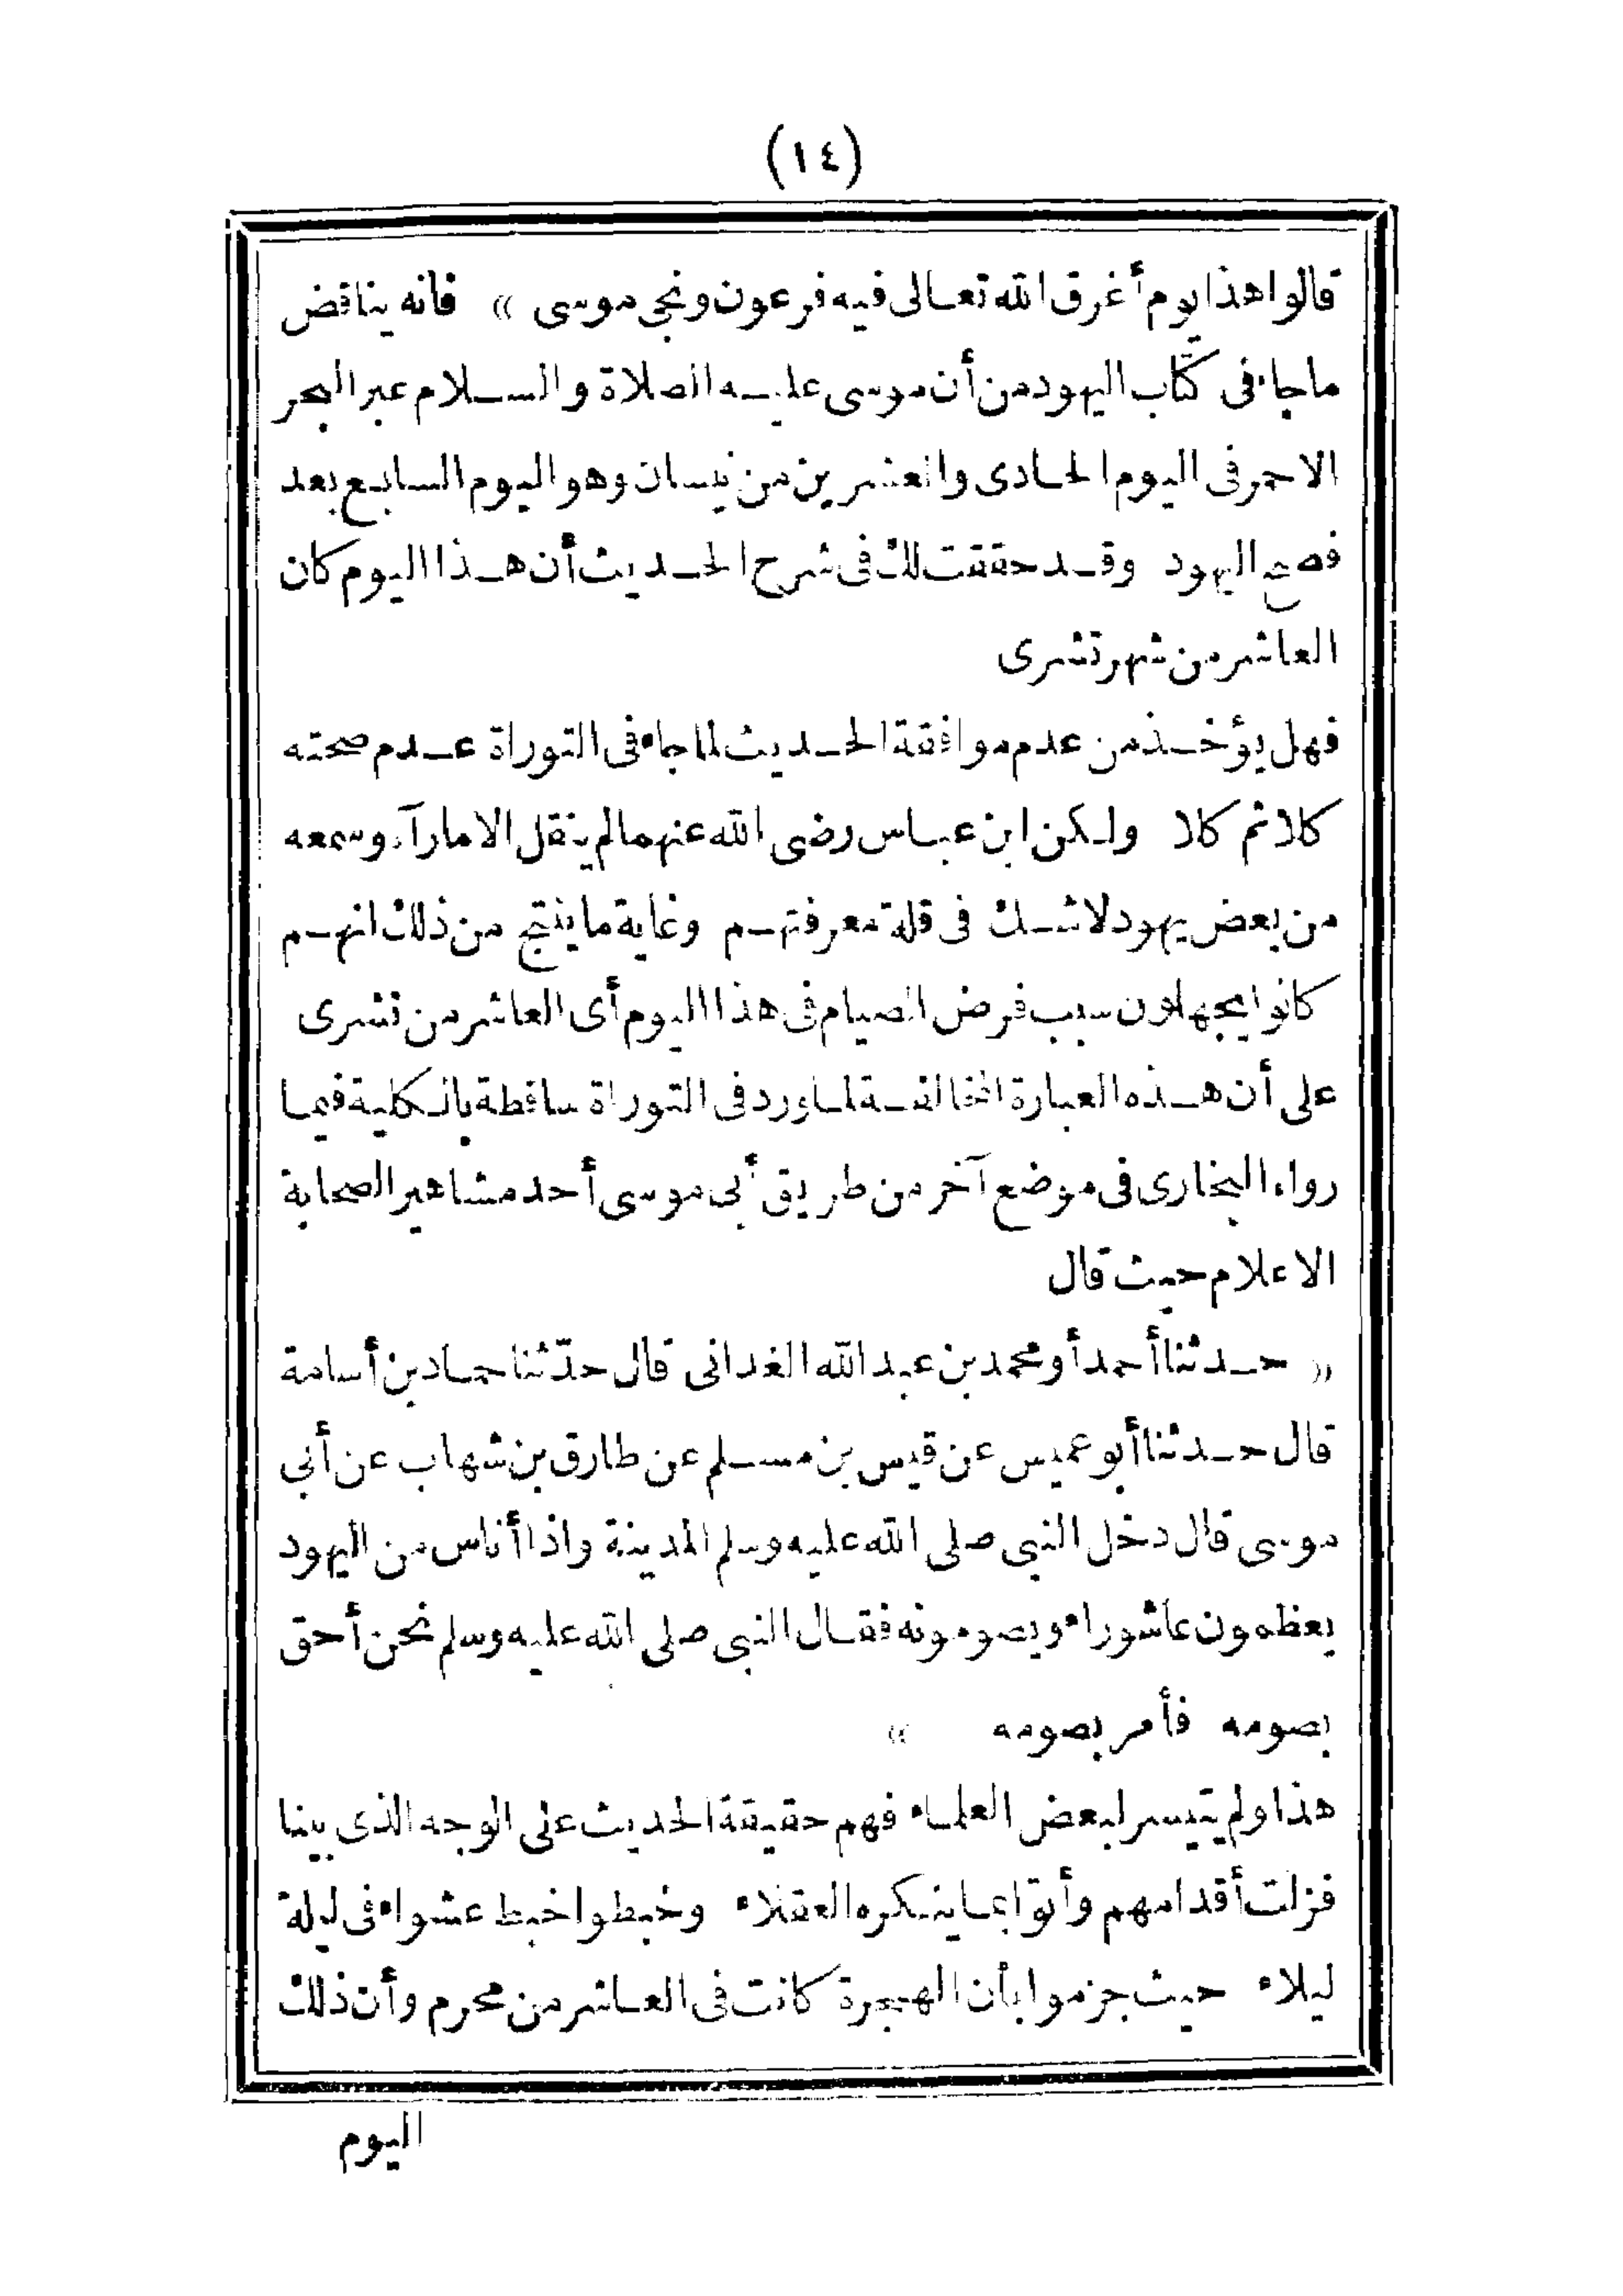 (١٤)
قالوا هذا يوم أغرق الله تعالى فيه فرعون ونجى موسى » فانه يناقض
ماجاء فى كتاب اليهود من أن موسى عليه الصلاة والسلام عبر البحر
الاحمر فى اليوم الحادى والعشرين من نيسان وهو اليوم السابع بعد
فصح اليهود وقد حققت لك فى شرح الحديث أن هذا اليوم كان
العاشر من شهر تشرى
فهل يؤخذ من عدم موافقة الحديث لما جاء فى التوراة عدم صحته
كلا ثم كلا ولكن ابن عباس رضى الله عنهما لم ينقل الا مارآه وسمعه
من بعض يهود لا شك فى قلة معرفتهم وغاية ما ينتج من ذلك انهم
كانوا يجهلون سبب فرض الصيام فى هذا اليوم أى العاشر من تشرى
على أن هذه العبارة المخالفة لما ورد فى التوراة ساقطة بالكلية فيما
رواه البخارى فى موضع آخر من طريق أبى موسى أحد مشاهير الصحابة
الاعلام حيث قال
« حدثنا أحمد أو محمد بن عبد الله الغدانى قال حدّثنا حماد بن أسامة
قال حدثنا أبو عميس عن قيس بن مسلم عن طارق بن شهاب عن أبى
موسى قال دخل النبى صلى الله عليه وسلم المدينة واذا أناس من اليهود
يعظمون عاشوراء ويصومونه فقال النبى صلى الله عليه وسلم نحن أحق
بصومه فأمر بصومه »
هذا ولم يتيسر لبعض العلماء فهم حقيقة الحديث على الوجه الذى بينا
فزلت أقدامهم وأتوا بما ينكره العقلاء وخبطوا خبط عشواء فى ليلة
ليلاء حيث جزموا بأن الهجرة كانت فى العاشر من محرم وأن ذلك
اليوم